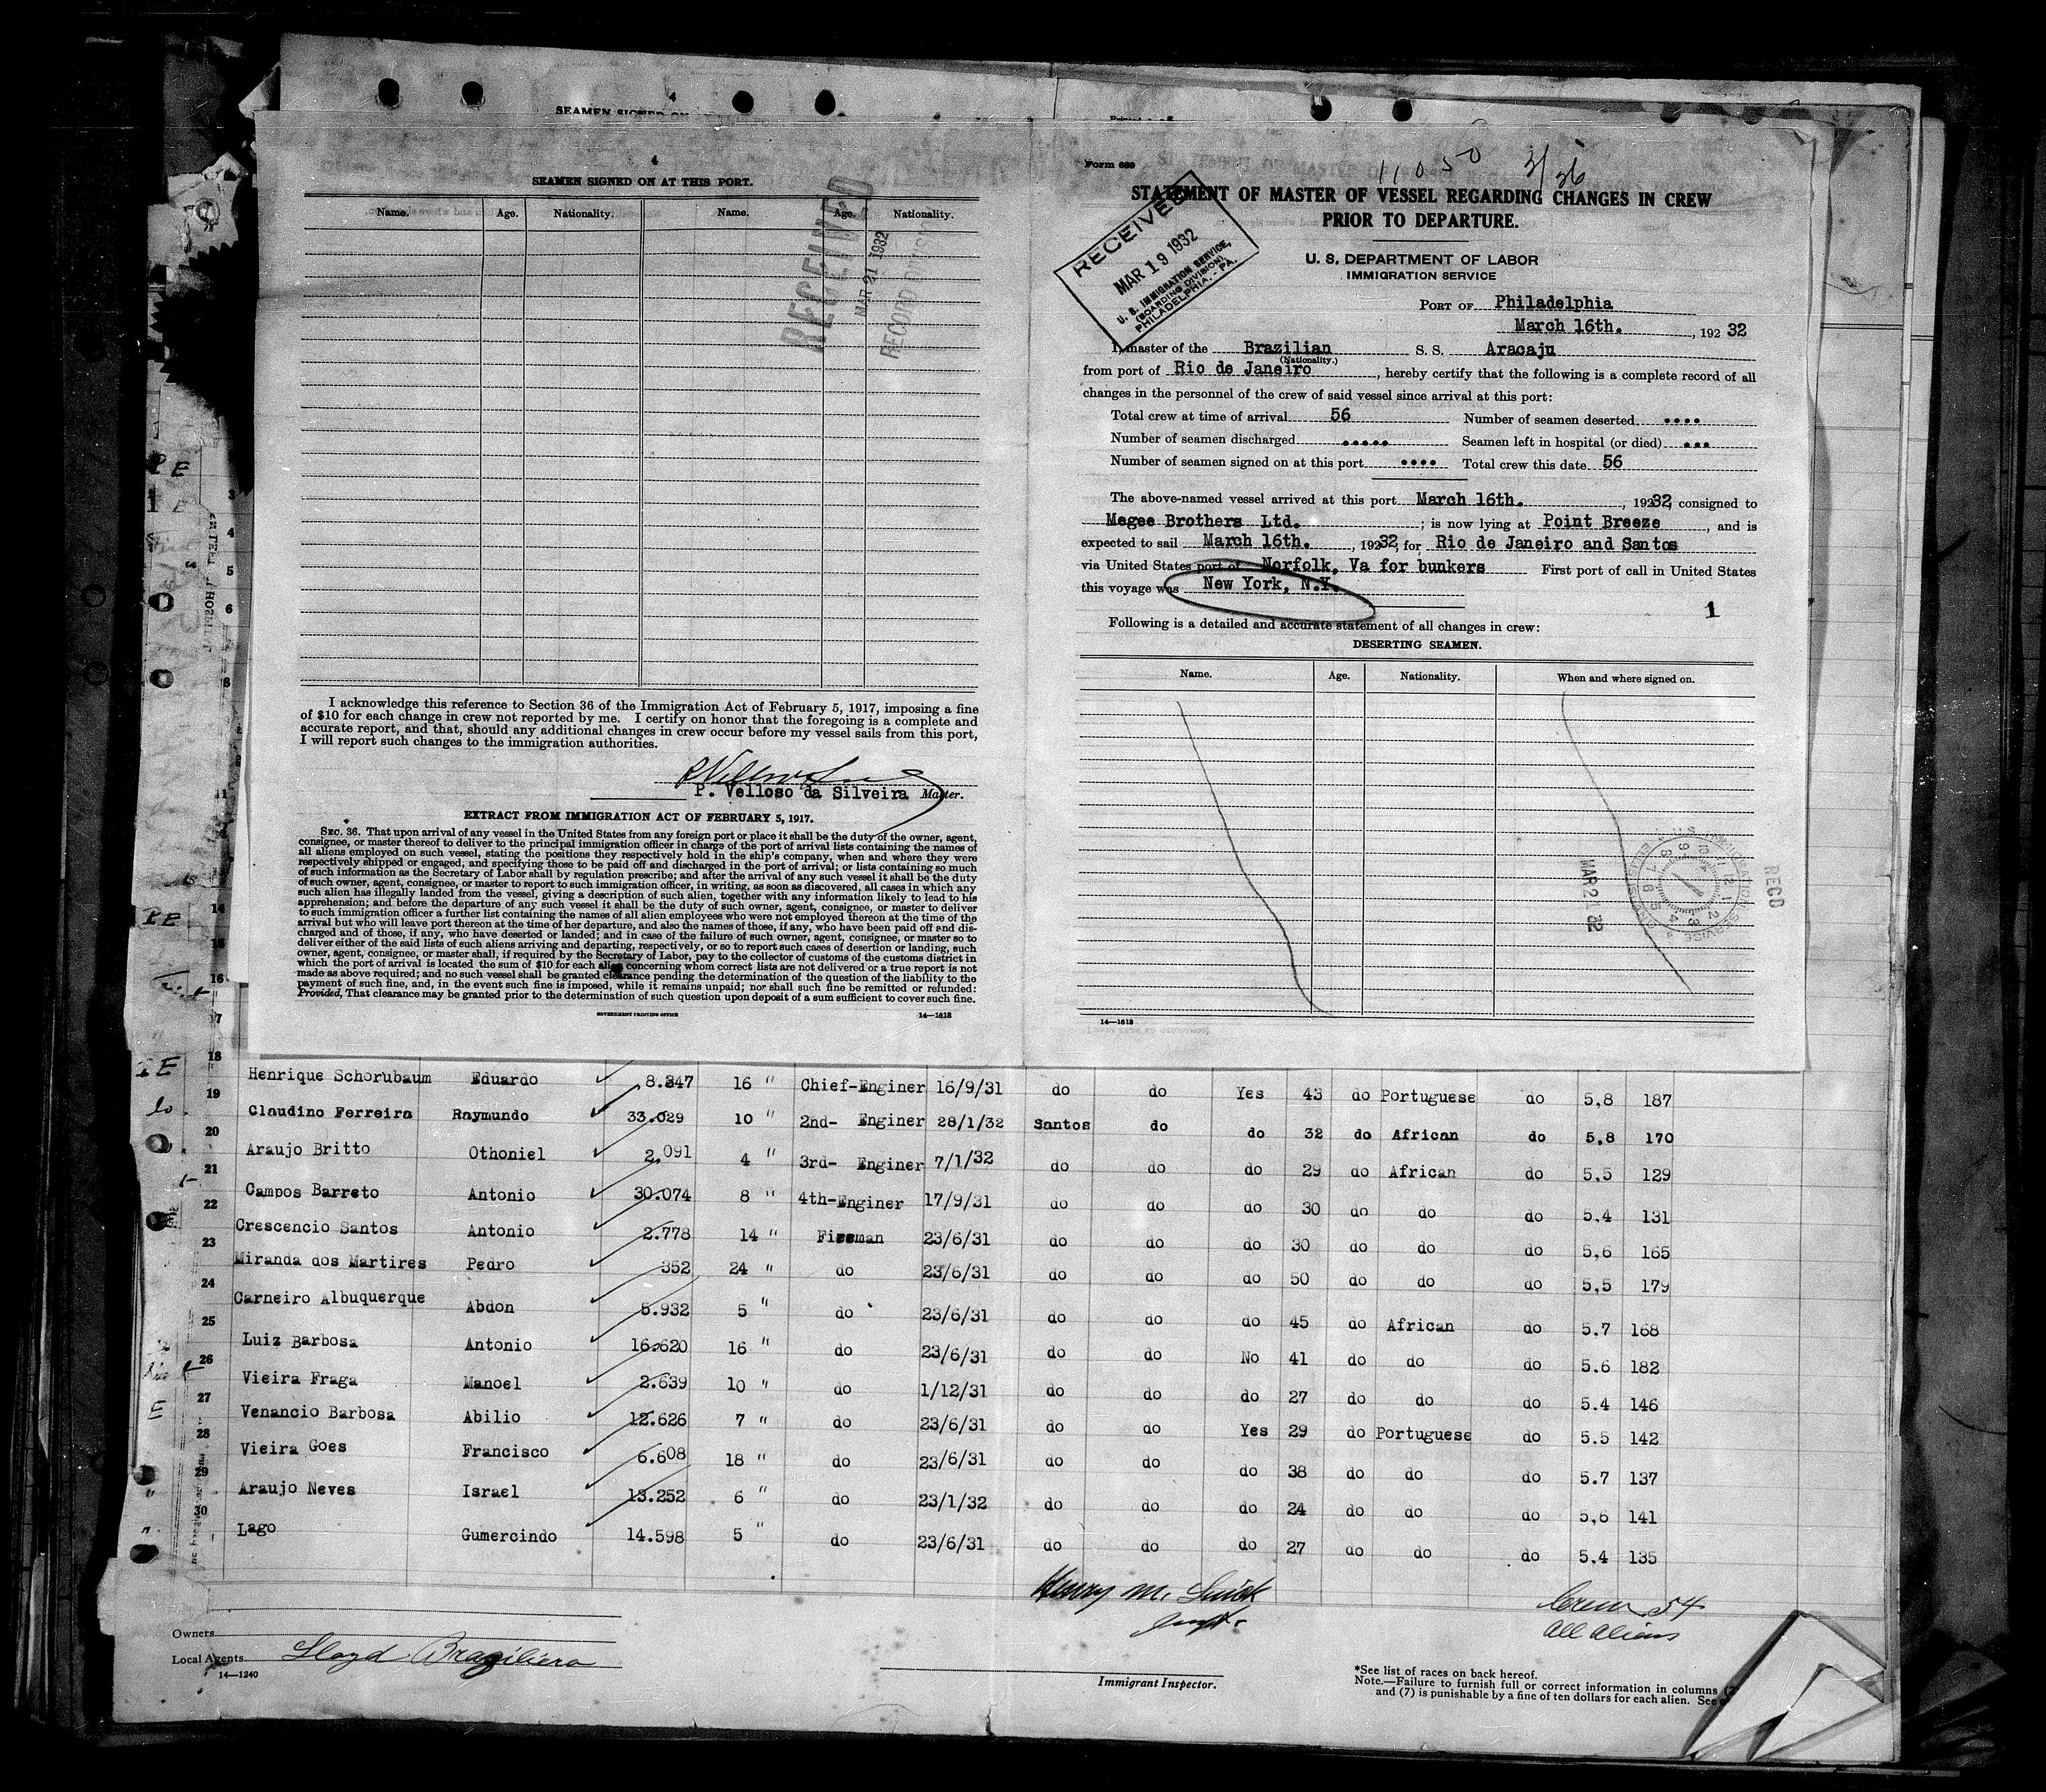 4
SEAMEN SIGNED ON AT THIS PORT.
Name. Age. Nationality. Name. Age. Nationality.
RECEIVED
MAR 21 1932
RECORD DIVISION
I acknowledge this reference to Section 36 of the Immigration Act of February 5, 1917, imposing a fine
of $10 for each change in crew not reported by me. I certify on honor that the foregoing is a complete and
accurate report, and that, should any additional changes in crew occur before my vessel sails from this port,
I will report such changes to the immigration authorities.
P. Velloso da Silveira Master.
EXTRACT FROM IMMIGRATION ACT OF FEBRUARY 5, 1917.
SEC. 36. That upon arrival of any vessel in the United States from any foreign port or place it shall be the duty of the owner, agent,
consignee, or master thereof to deliver to the principal immigration officer in charge of the port of arrival lists containing the names of
all aliens employed on such vessel, stating the positions they respectively hold in the ship's company, when and where they were
respectively shipped or engaged, and specifying those to be paid off and discharged in the port of arrival; or lists containing so much
of such information as the Secretary of Labor shall by regulation prescribe; and after the arrival of any such vessel it shall be the duty
of such owner, agent, consignee, or master to report to such immigration officer, in writing, as soon as discovered, all cases in which any
such alien has illegally landed from the vessel, giving a description of such alien, together with any information likely to lead to his
apprehension; and before the departure of any such vessel it shall be the duty of such owner, agent, consignee, or master to deliver
to such immigration officer a further list containing the names of all alien employees who were not employed thereon at the time of the
arrival but who will leave port thereon at the time of her departure, and also the names of those, if any, who have been paid off and dis-
charged and of those, if any, who have deserted or landed; and in case of the failure of such owner, agent, consignee, or master so to
deliver either of the said lists of such aliens arriving and departing, respectively, or so to report such cases of desertion or landing, such
owner, agent, consignee, or master shall, if required by the Secretary of Labor, pay to the collector of customs of the customs district in
which the port of arrival is located the sum of $10 for each alien concerning whom correct lists are not delivered or a true report is not
made as above required; and no such vessel shall be granted clearance pending the determination of the question of the liability to the
payment of such fine, and, in the event such fine is imposed, while it remains unpaid; nor shall such fine be remitted or refunded:
Provided, That clearance may be granted prior to the determination of such question upon deposit of a sum sufficient to cover such fine.
GOVERNMENT PRINTING OFFICE 14—1613
Form 689
11050 3/26
STATEMENT OF MASTER OF VESSEL REGARDING CHANGES IN CREW
PRIOR TO DEPARTURE.
RECEIVED
MAR 19 1932
U. S. IMMIGRATION SERVICE,
(BOARDING DIVISION)
PHILADELPHIA, - PA.
U. S. DEPARTMENT OF LABOR
IMMIGRATION SERVICE
PORT OF Philadelphia
March 16th. , 192 32
I, master of the Brazilian S. S. Aracaju
(Nationality.)
from port of Rio de Janeiro , hereby certify that the following is a complete record of all
changes in the personnel of the crew of said vessel since arrival at this port:
Total crew at time of arrival 56 Number of seamen deserted ....
Number of seamen discharged ..... Seamen left in hospital (or died) ...
Number of seamen signed on at this port .... Total crew this date 56
The above-named vessel arrived at this port March 16th. , 19232, consigned to
Megee Brothers Ltd. ; is now lying at Point Breeze , and is
expected to sail March 16th. , 19232, for Rio de Janeiro and Santos
via United States port of Norfolk, Va for bunkers First port of call in United States
this voyage was New York, N.Y.
1
Following is a detailed and accurate statement of all changes in crew:
DESERTING SEAMEN.
Name. Age. Nationality. When and where signed on.
MAR 21 32
REC'D
14—1613
18 Henrique Schorubaum Eduardo 8.347 16 " Chief-Enginer 16/9/31 do do Yes 43 do Portuguese do 5,8 187
19 Claudino Ferreira Raymundo 33.029 10 " 2nd- Enginer 28/1/32 Santos do do 32 do African do 5.8 170
20 Araujo Britto Othoniel 2.091 4 " 3rd- Enginer 7/1/32 do do do 29 do African do 5,5 129
21 Campos Barreto Antonio 30.074 8 " 4th-Enginer 17/9/31 do do do 30 do do do 5.4 131
22 Crescencio Santos Antonio 2.778 14 " Fireman 23/6/31 do do do 30 do do do 5,6 165
23 Miranda dos Martires Pedro 352 24 " do 23/6/31 do do do 50 do do do 5,5 179
24 Carneiro Albuquerque Abdon 5.932 5 " do 23/6/31 do do do 45 do African do 5.7 168
25 Luiz Barbosa Antonio 16.620 16 " do 23/6/31 do do No 41 do do do 5.6 182
26 Vieira Fraga Manoel 2.639 10 " do 1/12/31 do do do 27 do do do 5.4 146
27 Venancio Barbosa Abilio 12.626 7 " do 23/6/31 do do Yes 29 do Portuguese do 5.5 142
28 Vieira Goes Francisco 6.608 18 " do 23/6/31 do do do 38 do do do 5.7 137
29 Araujo Neves Israel 13.252 6 " do 23/1/32 do do do 24 do do do 5,6 141
30 Lago Gumercindo 14.598 5 " do 23/6/31 do do do 27 do do do 5.4 135
Crew 54
All Aliens
Owners
Local Agents Lloyd Braziliero
14—1240
Immigrant Inspector.
*See list of races on back hereof.
Note.—Failure to furnish full or correct information in columns
and (7) is punishable by a fine of ten dollars for each alien. See